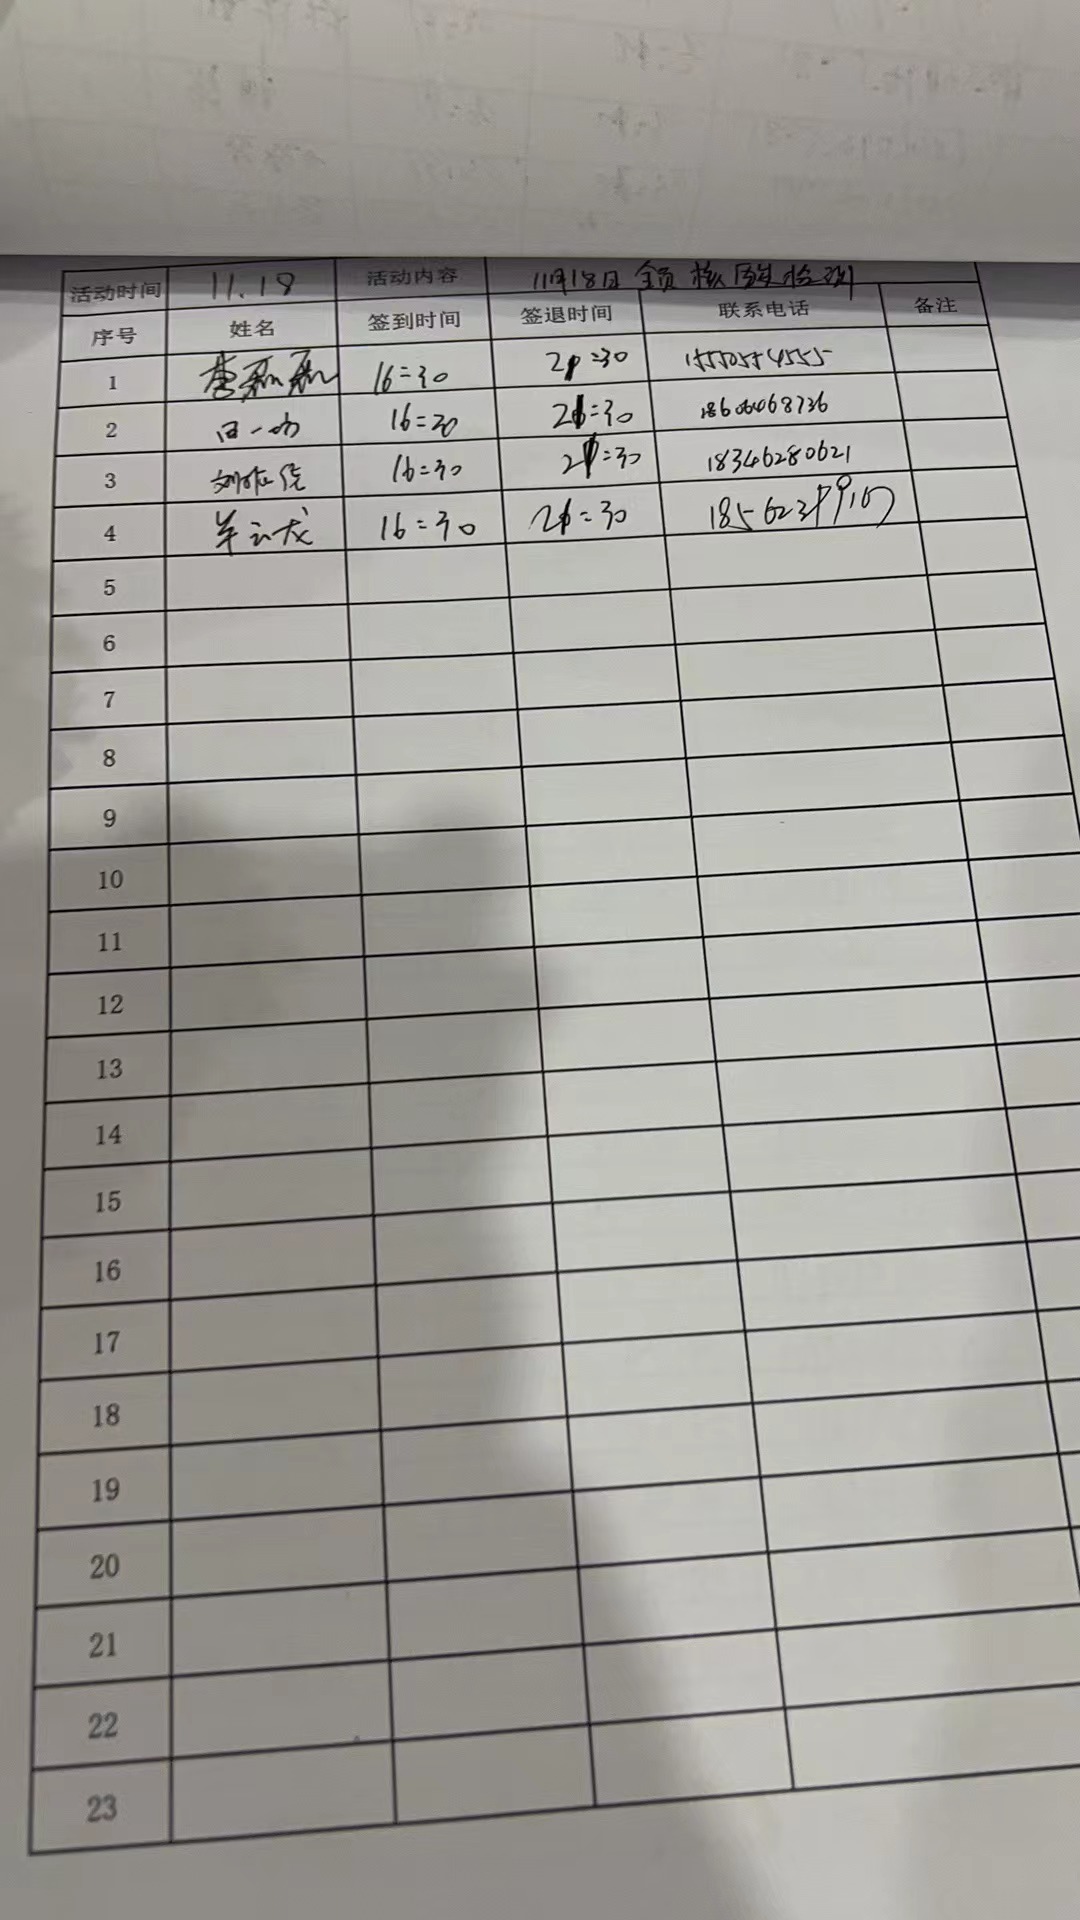 活动时间 11.18 活动内容 11月18日 全员核酸检测
序号 姓名 签到时间 签退时间 联系电话 备注
1 李磊磊 16:30 21:30 15550554555
2 田一 16:30 21:30 18606068736
3 刘 16:30 21:30 18346280621
4 羊云龙 16:30 21:30
5
6
7
8
9
10
11
12
13
14
15
16
17
18
19
20
21
22
23